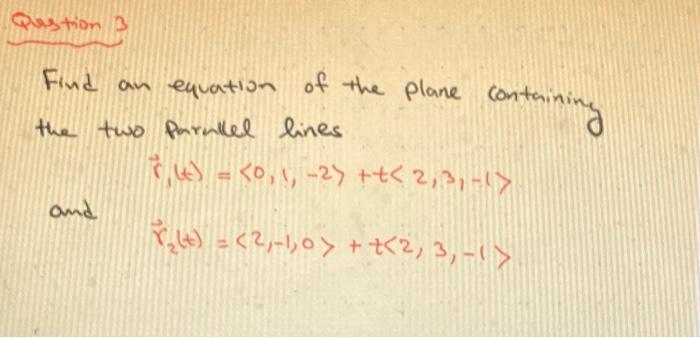 Question 3
Find an equation of the plane containing
the two Parallel lines
r⃗₁(t) = <0, 1, -2> + t< 2, 3, -1>
and
r⃗₂(t) = <2, -1, 0> + t<2, 3, -1>